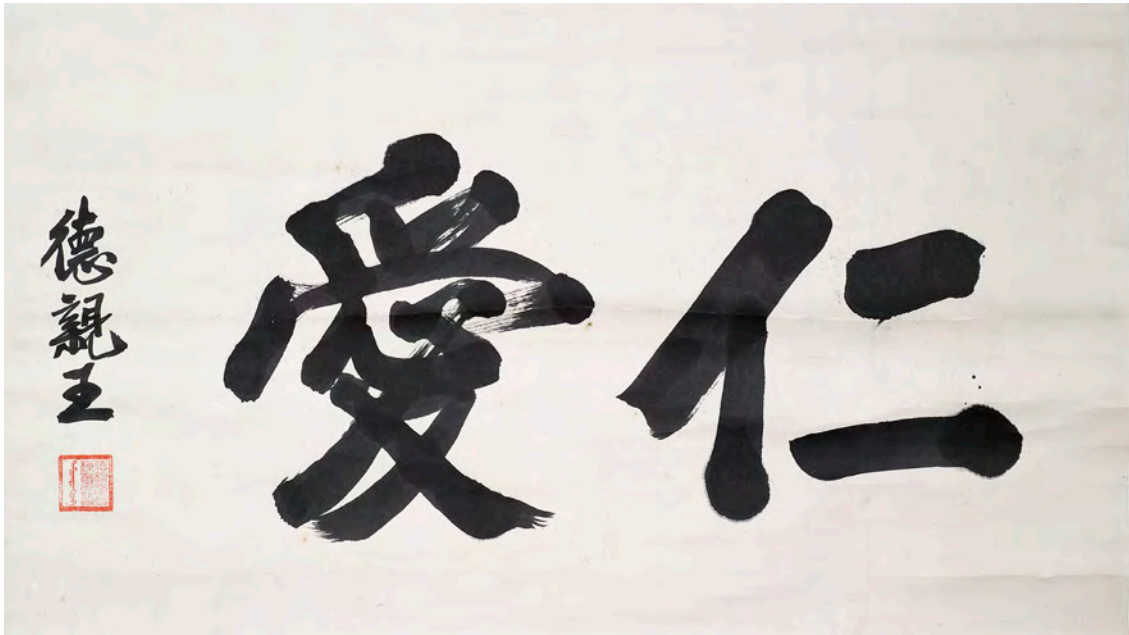 仁愛
德親王